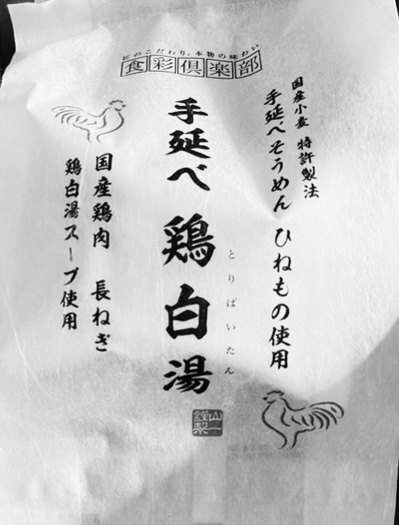 匠のこだわり、本物の味わい
食彩倶楽部
国産小麦 特許製法
手延べそうめん ひねもの使用
手延べ 鶏白湯
とりぱいたん
国産鶏肉 長ねぎ
鶏白湯スープ使用
山一謹製